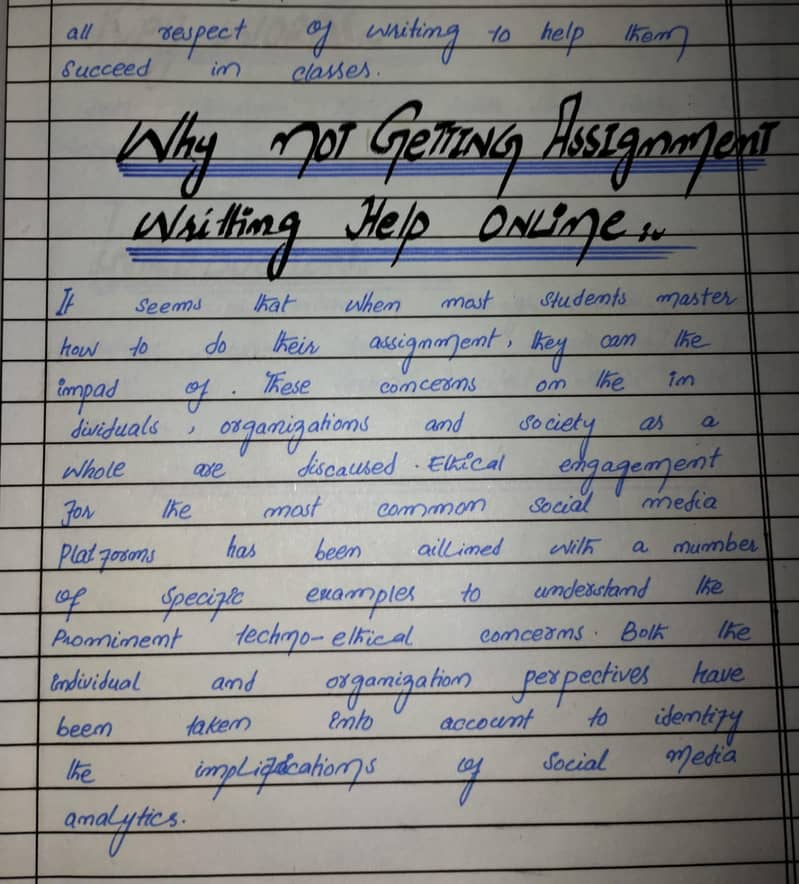 all respect of writing to help them
succeed in classes.
Why not Getting Assignment
Writting Help Online..
It seems that when most students master
how to do their assignment, they can the
impad of. These concerns on the in
dividuals, organizations and society as a
whole are discaused. Ethical engagement
for the most common social media
Platforms has been aillined with a number
of specific examples to understand the
Prominent techno-ethical concerns. Both the
individual and organization perpectives have
been taken into account to identify
the implications of social media
analytics.